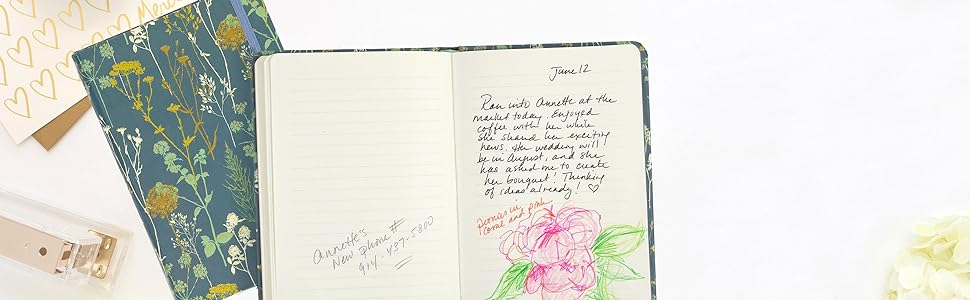 Merci
Annette's
New Phone #
914-437-5800
June 12
Ran into Annette at the
market today. Enjoyed
coffee with her while
she shared her exciting
news. Her wedding will
be in August, and she
has asked me to create
her bouquet! Thinking
of ideas already! ♡
peonies in
coral and pink